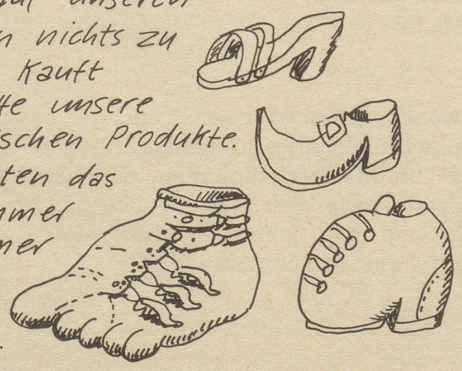 unseren
n nichts zu
Kauft
tte unsere
ischen Produkte.
ten das
mmer
mer